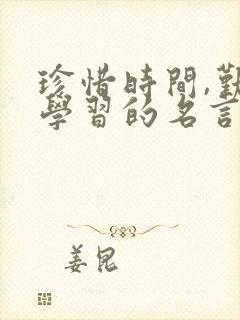 珍惜時間,勤
學習的名言
姜昆